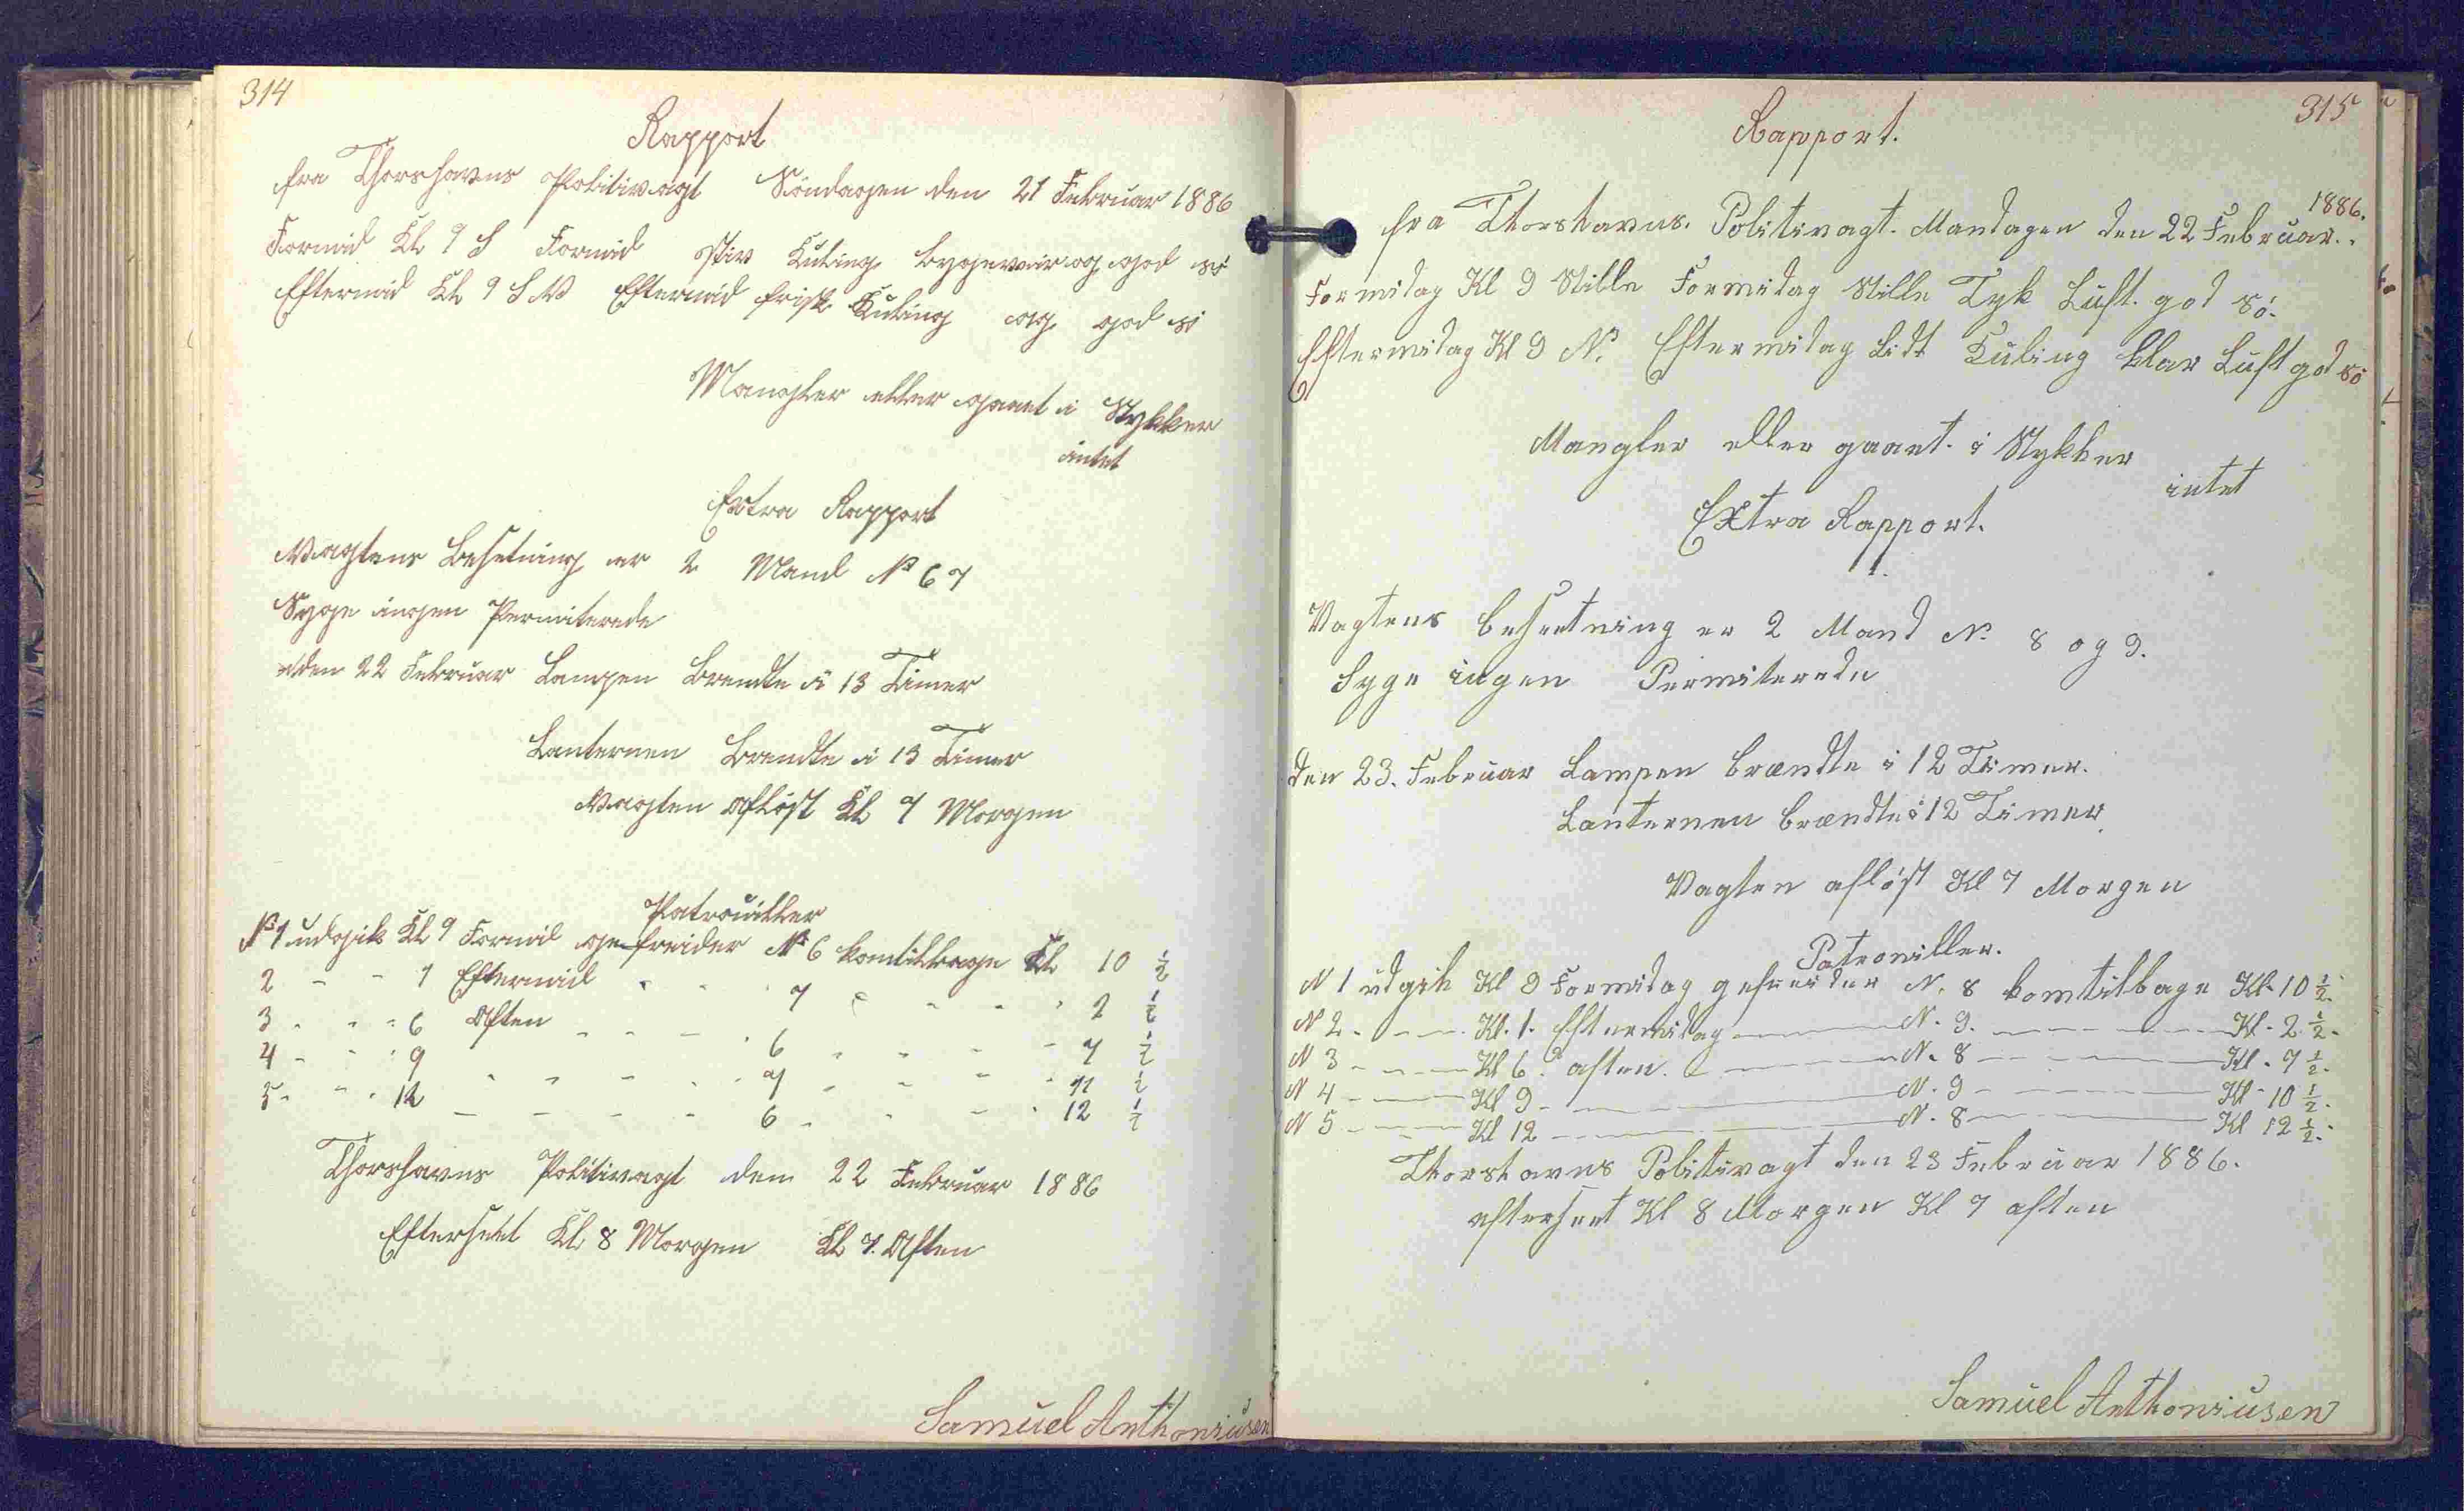 314
Rapport
fra Thorshavns Politivagt Söndagen den 21 Februar 1886
Formid Kl 9 S Formid stiv Kuling bygeveir og god sö
Eftermid Kl 9 S V Eftermid frisk Kuling og god sö
Mangler eller gaaet i Stykker
intet
Extra Rapport
Vagtens Besetning er 2 Mand No 6 7
Syge ingen Permiterede
den 22 Februar Lampen Brendte i 13 Timer
Lanternen Brendte i 13 Timer
Vagten Aflöst Kl 7 Morgen
Patrouiller
No 1 udgik Kl 9 Formid gefreider No 6 komtilbage Kl 10 1/2
2 - - 1 Eftermid - - - 7 - - - - 2 1/2
3 - - - 6 Aften - - - - 6 - - - - 7 1/2
4 - - - 9 - - - - - 7 - - - - 11 1/2
5 - - - 12 - - - - 6 - - - - 12 1/2
Thorshavns Politivagt den 22 Februar 1886
Efterseet Kl 8 Morgen Kl 7 Aften
Samuel Anthoniusen
315
Rapport.
1886.
fra Thorshavns. Politivagt. Mandagen den 22 Februar.
Formidag Kl 9 Stille Formidag Stille Tyk Luft. god sö.
Eftermidag Kl 9 N. Eftermidag Lidt Kuling klar Luft god sö
Mangler eller gaaet i Stykker
intet
Extra Rapport.
Vagtens besætning er 2 Mand N. 8 og 9.
Syge ingen Permiterede
den 23. Februar Lampen brændte i 12 Timer.
Lanternen brændte i 12 Timer
Vagten aflöst Kl 7 Morgen
Patrouiller.
N 1 udgik Kl 9 Formidag gefreider N. 8 komtilbage Kl. 10 1/2.
N 2 - - - Kl. 1. Eftermidag - N. 9. - - - Kl. 2 1/2.
N 3 - - - Kl 6. aften. - N. 8 - - - Kl. 7 1/2.
N 4 - - - Kl 9 - - N. 9 - - - Kl. 10 1/2.
N 5 - - - Kl 12 - - N. 8 - - - Kl 12 1/2.
Thorshavns Politivagt den 23 Februar 1886.
efterseet Kl 8 Morgen Kl 7 aften
Samuel Anthoniusen